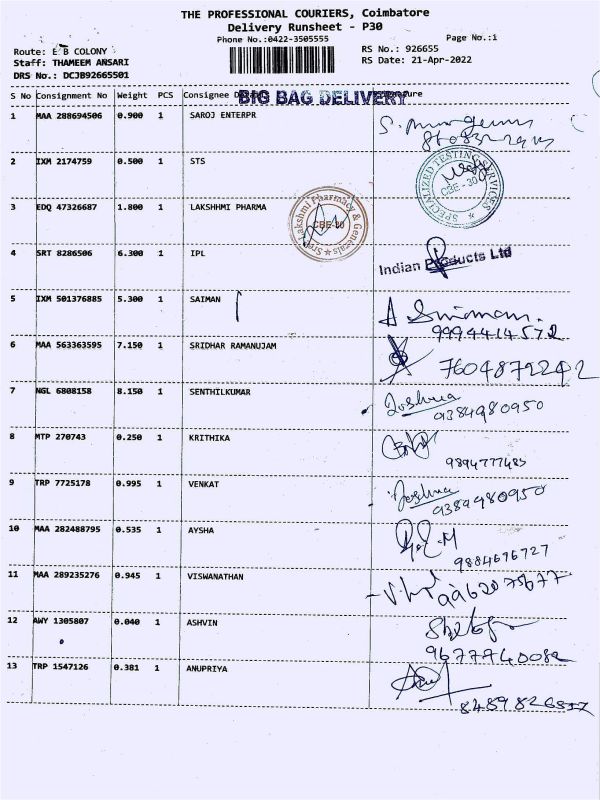 THE PROFESSIONAL COURIERS, Coimbatore
Delivery Runsheet - P30
Phone No.:0422-3505555
Page No.:1
Route: E B COLONY
RS No.: 926655
Staff: THAMEEM ANSARI
RS Date: 21-Apr-2022
DRS No.: DCJB92665501
S No Consignment No Weight PCS Consignee
BIG BAG DELIVERY
1 MAA 288694506 0.900 1 SAROJ ENTERPR
2 IXM 2174759 0.500 1 STS
SPECIALIZED TESTING SERVICES CBE-30
3 EDQ 47326687 1.800 1 LAKSHHMI PHARMA
Sree Lakshmi Pharmacy & Generals CBE-30
4 SRT 8286506 6.300 1 IPL
Indian Products Ltd
5 IXM 501376885 5.300 1 SAIMAN
9994414572
6 MAA 563363595 7.150 1 SRIDHAR RAMANUJAM
7604872242
7 NGL 6808158 8.150 1 SENTHILKUMAR Joshua
9384980950
8 MTP 270743 0.250 1 KRITHIKA
9894777485
9 TRP 7725178 0.995 1 VENKAT Joshua
9384980950
10 MAA 282488795 0.535 1 AYSHA
9884676727
11 MAA 289235276 0.945 1 VISWANATHAN
9962075677
12 AWY 1305807 0.040 1 ASHVIN
9677740082
13 TRP 1547126 0.381 1 ANUPRIYA